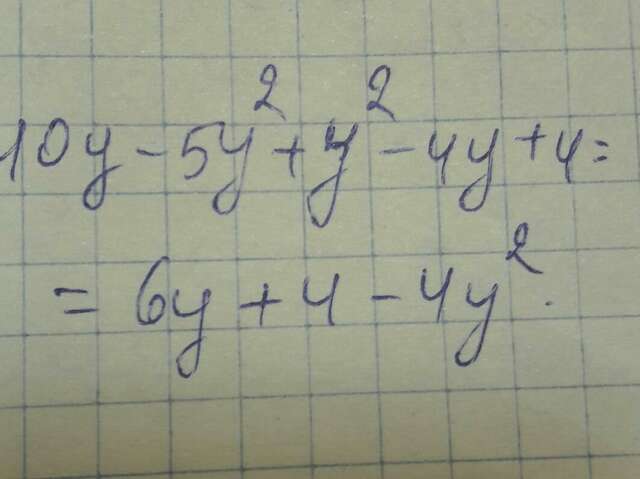 10y - 5y² + y² - 4y + 4 =
= 6y + 4 - 4y².